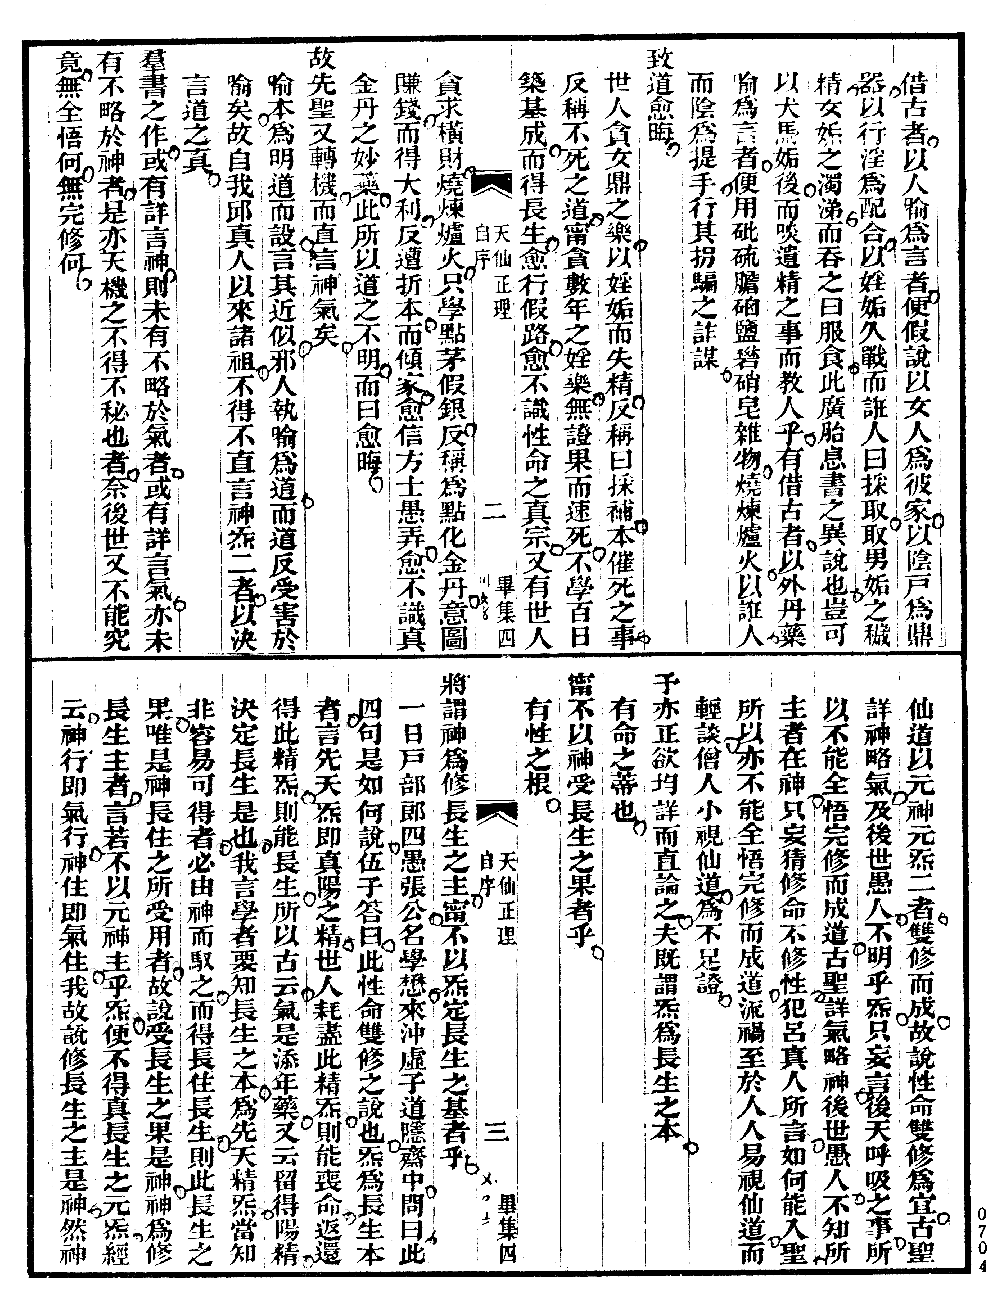 借古者以人喻為言者便假說以女人為彼家以陰戸為鼎
器以行淫為配合以婬姤久戰而誑人曰採取取男姤之穢
精女姤之濁涕而吞之曰服食此廣胎息書之異說也豈可
以犬馬姤後而啖遺精之事而教人乎有借古者以外丹藥
喻為言者便用砒硫膽硇鹽礬硝皂雜物燒煉爐火以誑人
而陰為提手行其拐騙之詐謀
致道愈晦
世人貪女鼎之樂以婬姤而失精反稱曰採補本催死之事
反稱不死之道甯貪數年之婬樂無證果而速死不學百日
築基成而得長生愈行假路愈不識性命之真宗又有世人
天仙正理
自序
二
畢集四
貪求橫財燒煉爐火只學點茅假銀反稱為點化金丹意圖
賺錢而得大利反遭折本而傾家愈信方士愚弄愈不識真
金丹之妙藥此所以道之不明而曰愈晦
故先聖又轉機而直言神氣矣
喻本為明道而設言其近似邪人執喻為道而道反受害於
喻矣故自我邱真人以來諸祖不得不直言神炁二者以決
言道之真
羣書之作或有詳言神則未有不略於氣者或有詳言氣亦未
有不略於神者是亦天機之不得不秘也者奈後世又不能究
竟無全悟何無完修何
仙道以元神元炁二者雙修而成故說性命雙修為宜古聖
詳神略氣及後世愚人不明乎炁只妄言後天呼吸之事所
以不能全悟完修而成道古聖詳氣略神後世愚人不知所
主者在神只妄猜修命不修性犯呂真人所言如何能入聖
所以亦不能全悟完修而成道流禍至於人人易視仙道而
輕談僧人小視仙道為不足證
予亦正欲均詳而直論之夫既謂炁為長生之本
有命之蒂也
甯不以神受長生之果者乎
有性之根
天仙正理
自序
三
畢集四
將謂神為修長生之主甯不以炁定長生之基者乎
一日戸部郎四愚張公名學懋來沖虛子道隱齋中問曰此
四句是如何說伍子答曰此性命雙修之說也炁為長生本
者言先天炁即真陽之精世人耗盡此精炁則能喪命返還
得此精炁則能長生所以古云氣是添年藥又云留得陽精
決定長生是也我言學者要知長生之本為先天精炁當知
非容易可得者必由神而馭之而得長住長生則此長生之
果唯是神長住之所受用者故說受長生之果是神神為修
長生主者言若不以元神主乎炁便不得真長生之元炁經
云神行即氣行神住即氣住我故說修長生之主是神然神
0704